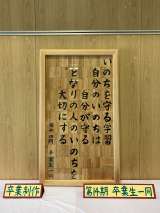 いのちを守る学習
自分のいのちは
自分が守る
となりの人のいのちを
大切にする
卒業制作
第14期 卒業生一同